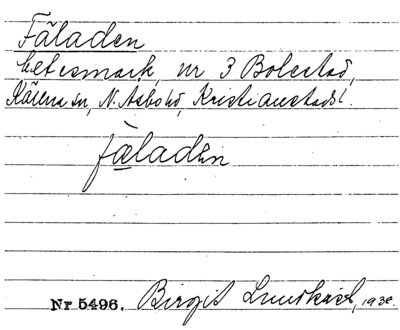 Fäladen
betesmark, nr 3 Bolestad,
Källna sn, N. Åsbo hd, Kristianstads l.
fäladen
Nr 5496. Birgit Lundkvist, 1938.